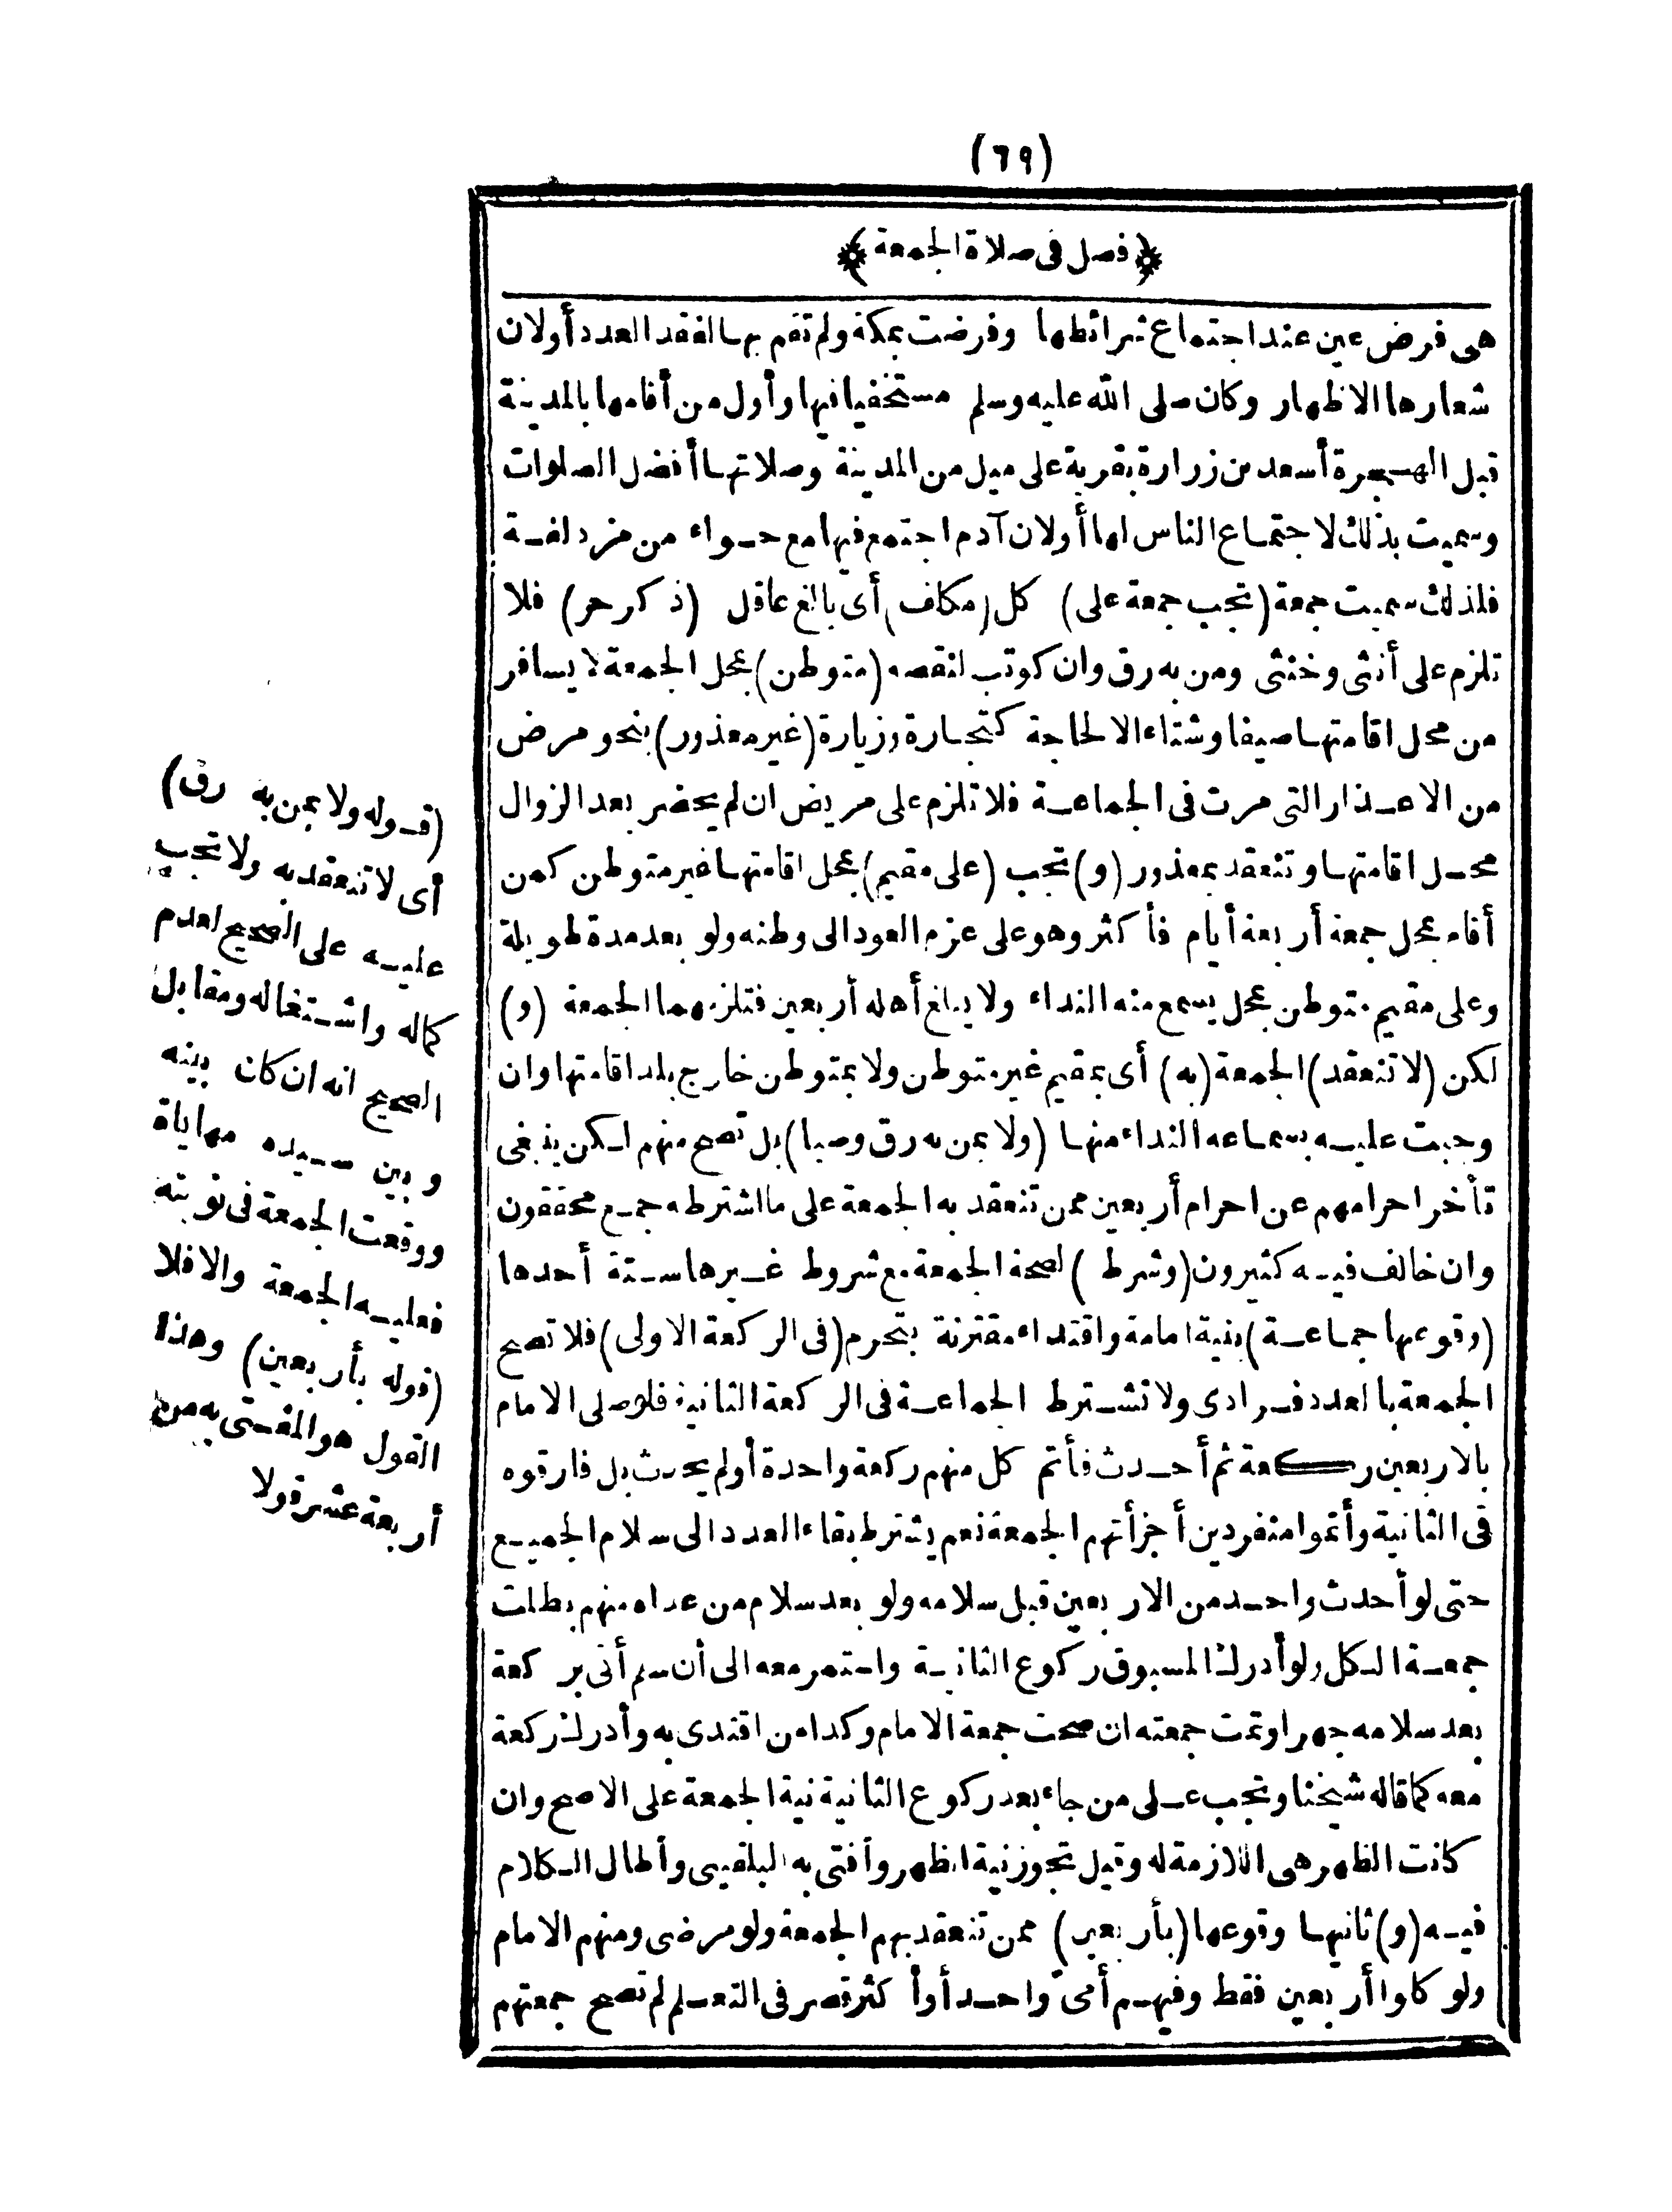 (٦٩)
﴿فصل فى صلاة الجمعة﴾
هى فرض عين عند اجتماع شرائطها وفرضت بمكة ولم تقم بها لفقد العدد أولان
شعارها الاظهار وكان صلى الله عليه وسلم مستخفيا فيها وأول من أقامها بالمدينة
قبل الهجرة أسعد بن زرارة بقرية على ميل من المدينة وصلاتها أفضل الصلوات
وسميت بذلك لاجتماع الناس لها أولان آدم اجتمع فيها مع حواء من مزدلفة
فلذلك سميت جمعة (تجب جمعة على) كل (مكلف) أى بالغ عاقل (ذكر حر) فلا
تلزم على أنثى وخنثى ومن به رق وان كوتب لنقصه (متوطن) بمحل الجمعة لا يسافر
من محل اقامتها صيفا وشتاء الا لحاجة كتجارة وزيارة (غير معذور) بنحو مرض
من الاعذار التى مرت فى الجماعة فلا تلزم على مريض ان لم يحضر بعد الزوال
محل اقامتها وتنعقد بمعذور (و) تجب (على مقيم) بمحل اقامتها غير متوطن كمن
أقام بمحل جمعة أربعة أيام فأكثر وهو على عزم العود الى وطنه ولو بعد مدة طويلة
وعلى مقيم متوطن بمحل يسمع منه النداء ولا يبلغ أهله أربعين فتلزمهما الجمعة (و)
لكن (لا تنعقد) الجمعة (به) أى بمقيم غير متوطن ولا بمتوطن خارج بلد اقامتها وان
وجبت عليه بسماعه النداء منها (ولا بمن به رق وصبا) بل تصح منهم لكن ينبغى
تأخر احرامهم عن احرام أربعين ممن تنعقد به الجمعة على ما اشترطه جمع محققون
وان خالف فيه كثيرون (وشرط) لصحة الجمعة مع شروط غيرها ستة أحدها
(وقوعها جماعة) بنية امامة واقتداء مقترنة بتحرم (فى الركعة الاولى) فلا تصح
الجمعة بالعدد فرادى ولا تشترط الجماعة فى الركعة الثانية فلو صلى الامام
بالاربعين ركعة ثم أحدث فأتم كل منهم ركعة واحدة أولم يحدث بل فارقوه
فى الثانية وأتموا منفردين أجزأتهم الجمعة نعم يشترط بقاء العدد الى سلام الجميع
حتى لو أحدث واحد من الاربعين قبل سلامه ولو بعد سلام من عداه منهم بطلت
جمعة الكل ولو أدرك المسبوق ركوع الثانية واستمر معه الى أن سلم أتى بركعة
بعد سلامه جهرا وتمت جمعته ان صحت جمعة الامام وكذا من اقتدى به وأدرك ركعة
معه كما قاله شيخنا وتجب على من جاء بعد ركوع الثانية نية الجمعة على الاصح وان
كانت الظهر هى اللازمة له وقيل تجوز نية الظهر وأفتى به البلقينى وأطال الكلام
فيه (و) ثانيها وقوعها (بأربعين) ممن تنعقد بهم الجمعة ولو مرضى ومنهم الامام
ولو كانوا أربعين فقط وفيهم أمى واحد أو أكثر قصر فى التعلم لم تصح جمعتهم
(قوله ولا بمن به رق)
أى لا تنعقد به ولا تجب
عليه على الصحيح لعدم
كماله واشتغاله ومقابل
الصحيح انه ان كان بينه
وبين سيده مهاياة
ووقعت الجمعة فى نوبته
فعليه الجمعة والا فلا
(قوله بأربعين) وهذا
القول هو المفتى به من
أربعة عشر قولا